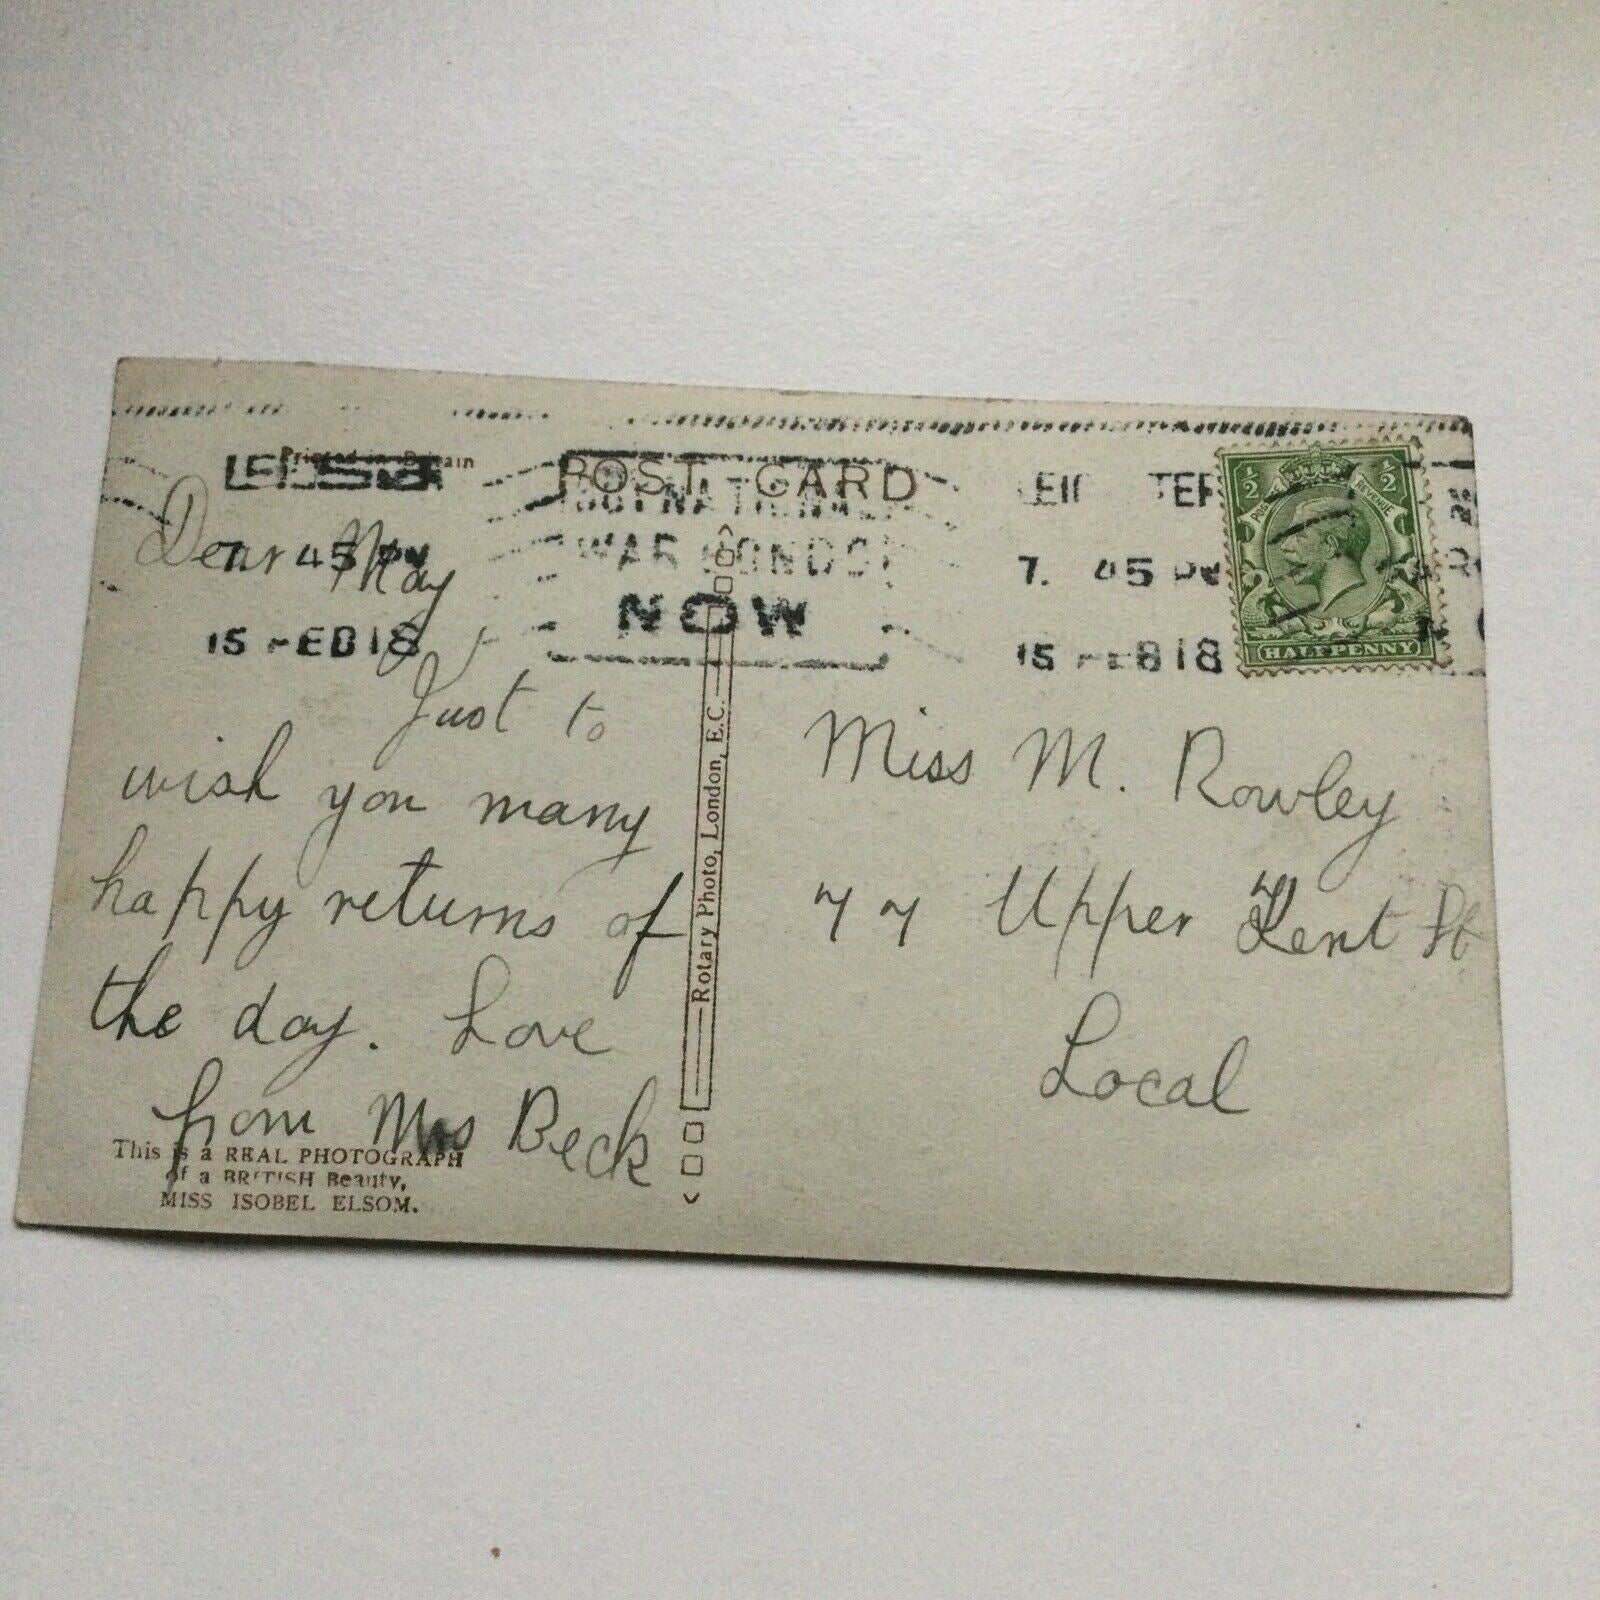 Printed in Britain
POST CARD
LEICESTER
7. 45 PM
15 FEB 18
BUY NATIONAL
WAR BONDS
NOW
LEICESTER
7. 45 PM
15 FEB 18
½ ½
POSTAGE REVENUE
HALFPENNY
Dear May
Just to
wish you many
happy returns of
the day. Love
from Mrs Beck
This is a REAL PHOTOGRAPH
of a BRITISH Beauty,
MISS ISOBEL ELSOM.
Rotary Photo, London, E.C.
Miss M. Rowley
77 Upper Kent St
Local